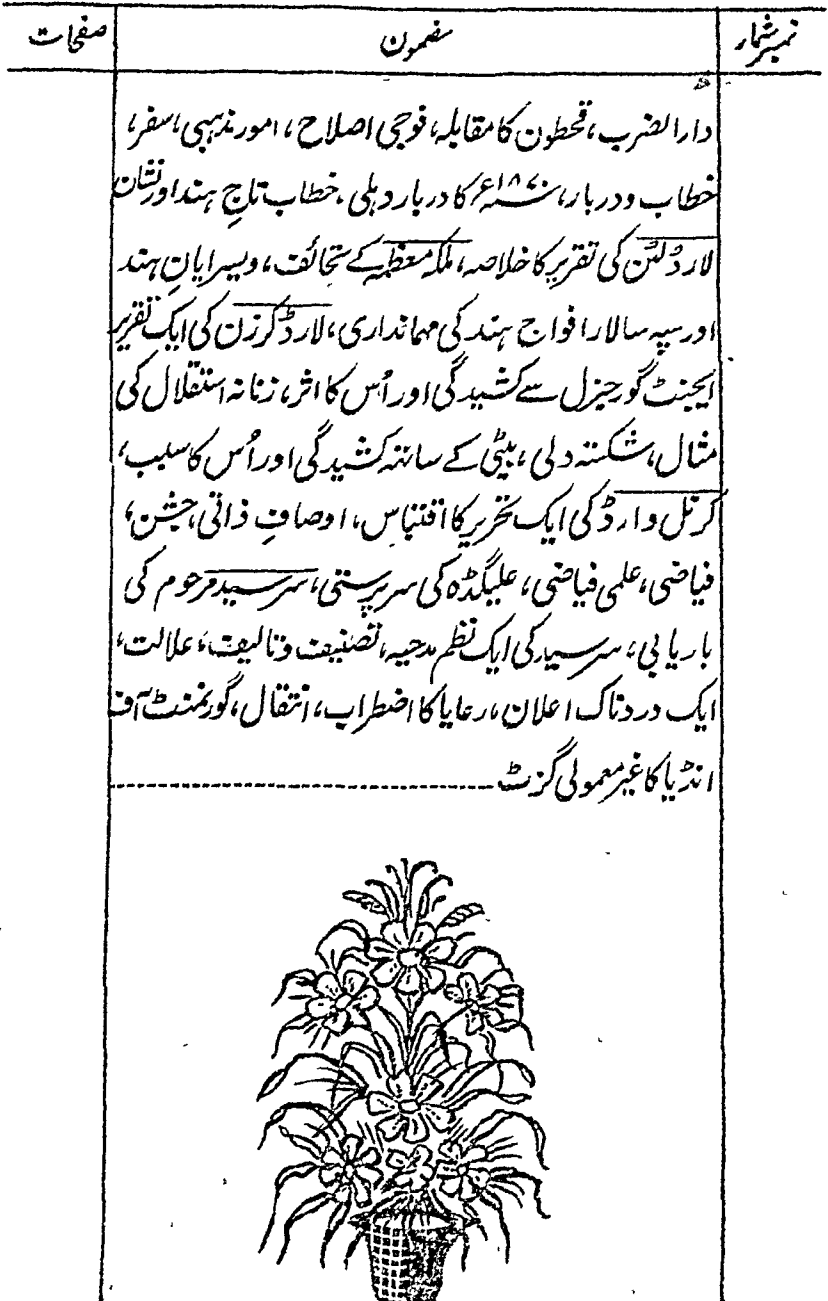 نمبر شمار مضمون صفحات
دار الضرب، قحطون کا مقابلہ، فوجی اصلاح، امور مذہبی، سفر،
خطاب و دربار، ۱۸۷۷ء کا دربار دہلی، خطاب تاجِ ہند اور نشان
لارڈ لٹن کی تقریر کا خلاصہ، ملکہ معظمہ کے تحائف، ویسرایانِ ہند
اور سپہ سالار افواج ہند کی مہمانداری، لارڈ کرزن کی ایک تقریر
ایجنٹ گورجنرل سے کشیدگی اور اُس کا اثر، زنانہ استقلال کی
مثال، شکستہ دلی، بیٹی کے ساتھ کشیدگی اور اُس کا سبب،
کرنل وارڈ کی ایک تحریر کا اقتباس، اوصافِ ذاتی، جشن،
فیاضی، علمی فیاضی، علیگڈہ کی سرپرستی، سرسید مرحوم کی
باریابی، سرسید کی ایک نظم مدحیہ، تصنیف و تالیف، علالت،
ایک دردناک اعلان، رعایا کا اضطراب، انتقال، گورنمنٹ آف
انڈیا کا غیر معمولی گزٹ